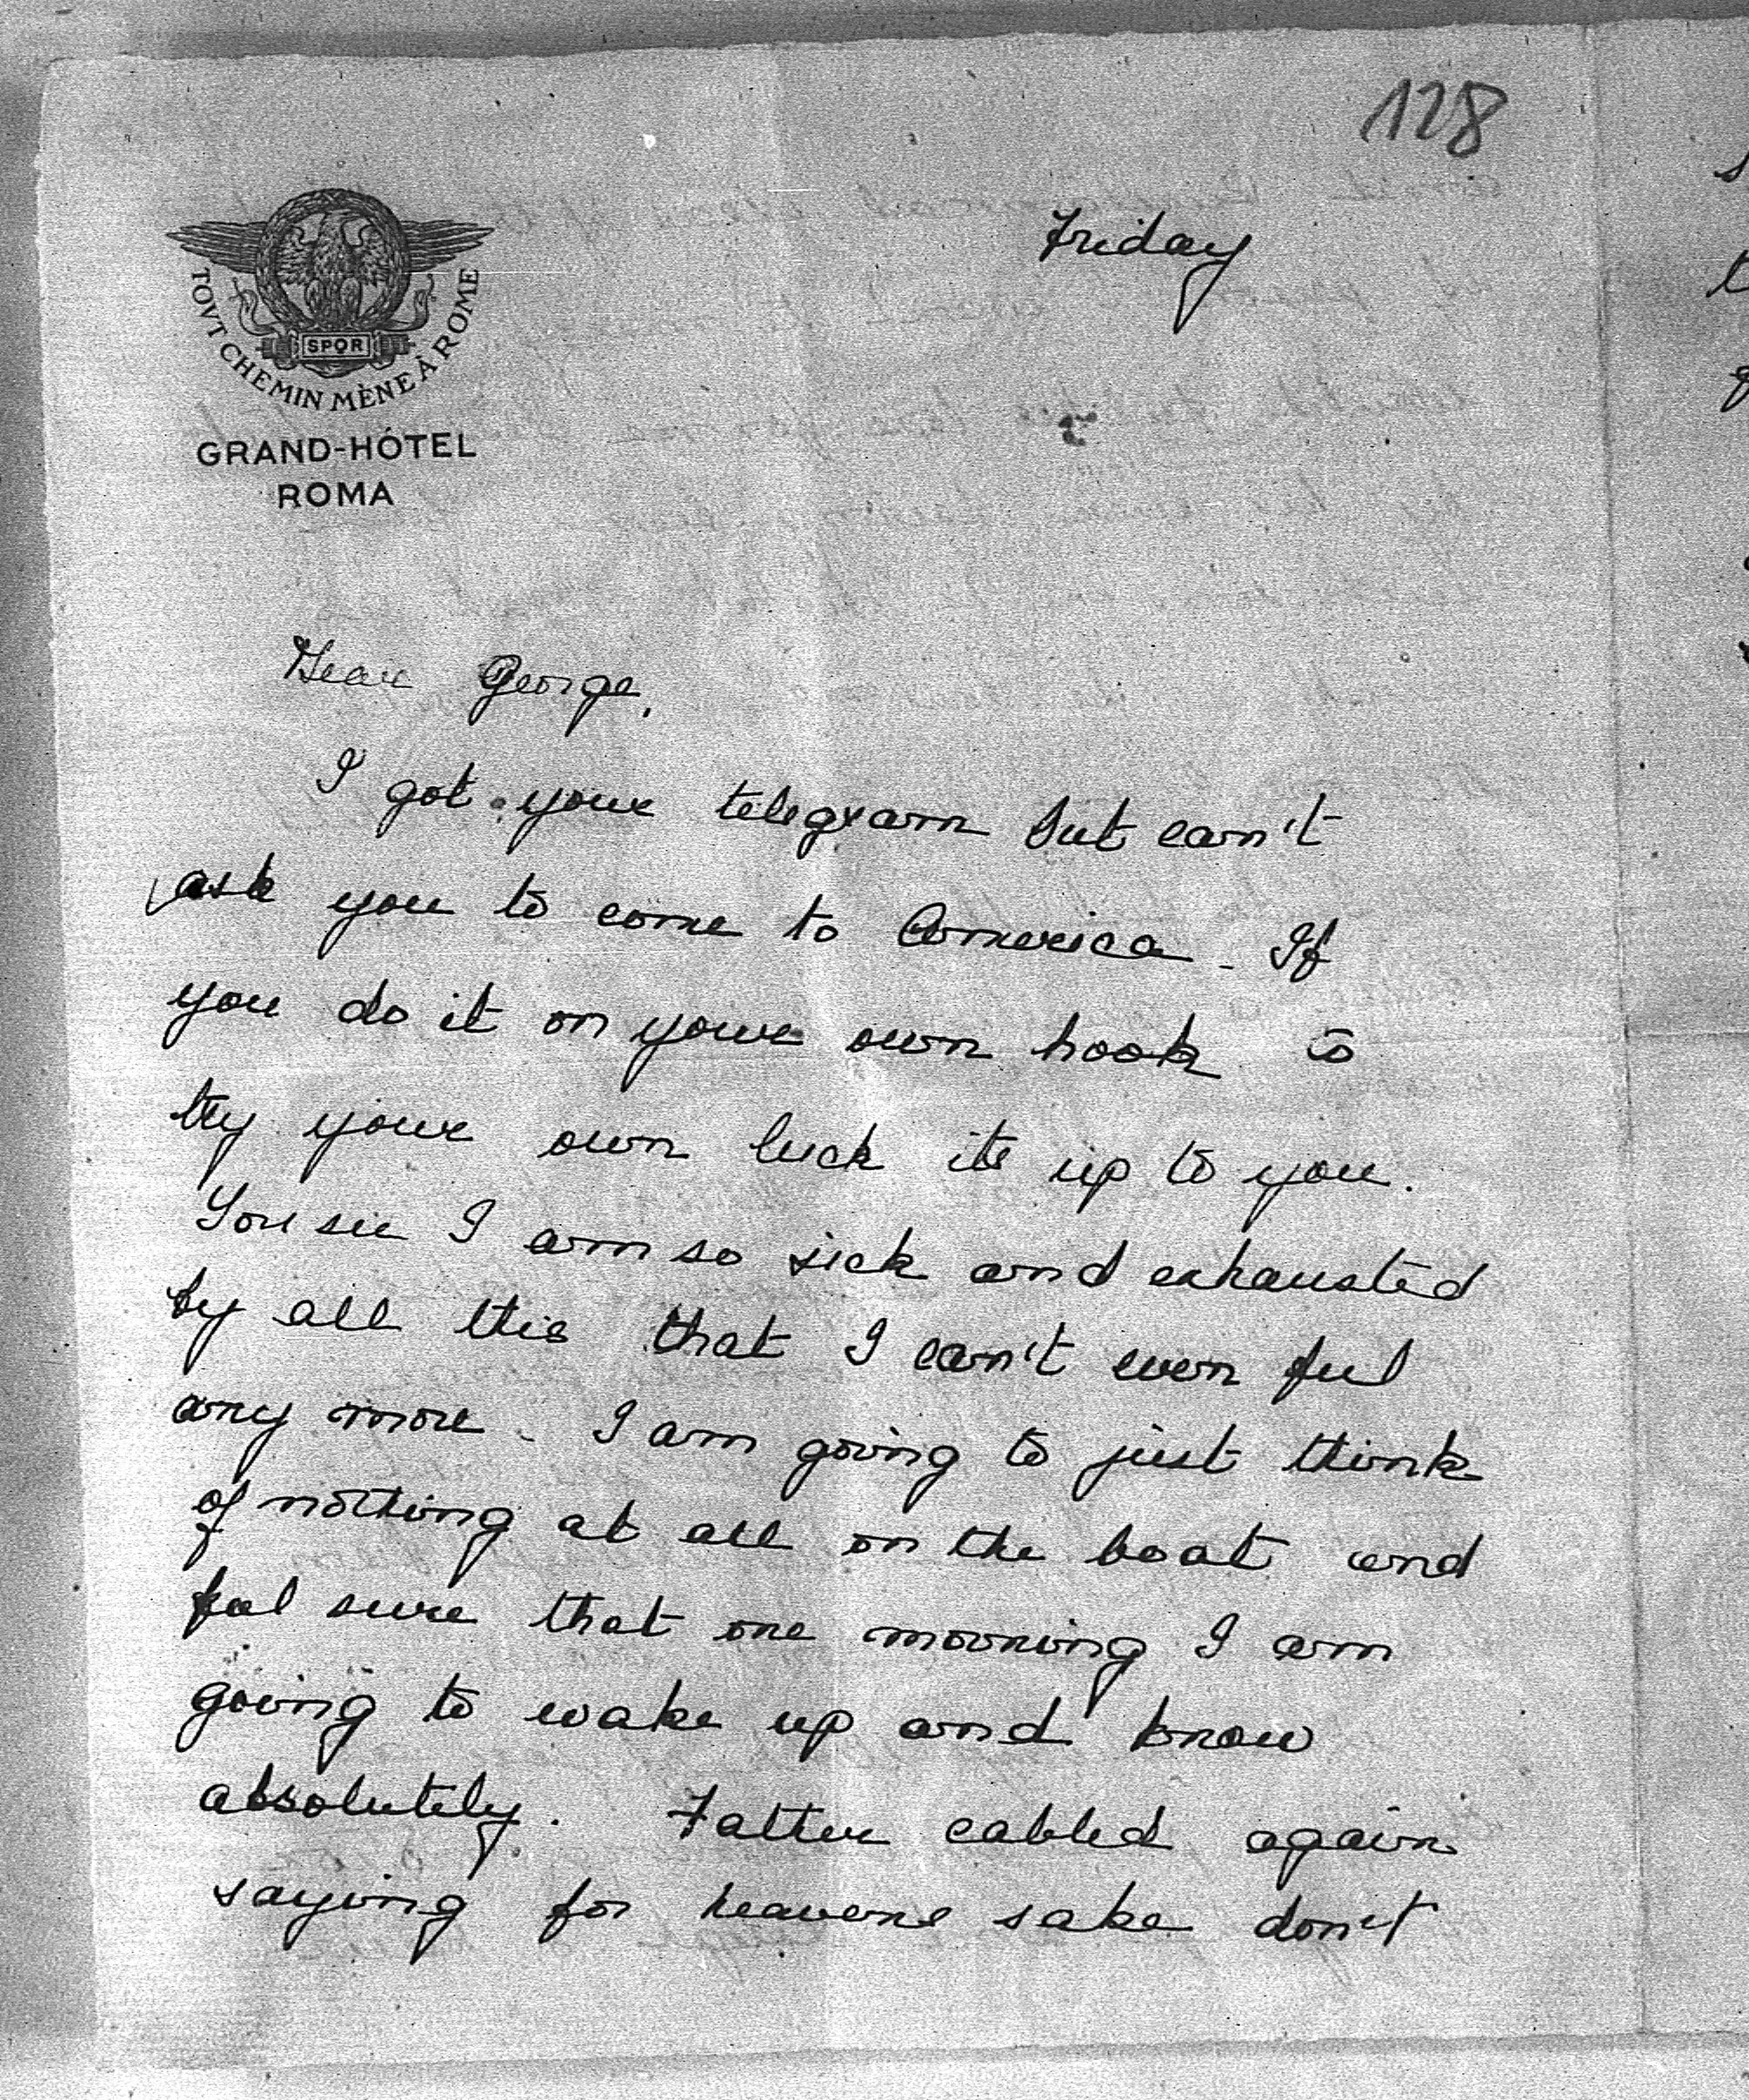 128
Friday
TOVT CHEMIN MÈNE À ROME
SPQR
GRAND-HÔTEL
ROMA
Dear George,
I got your telegram but can't
ask you to come to America. If
you do it on your own hook to
try your own luck its up to you.
You see I am so sick and exhausted
by all this that I can't even feel
any more. I am going to just think
of nothing at all on the boat and
feel sure that one morning I am
going to wake up and know
absolutely. Father cabled again
saying for heavens sake don't